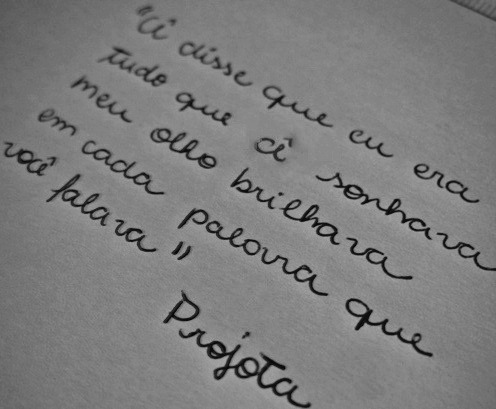 "Cê disse que eu era
tudo que cê sonhava
meu olho brilhava
em cada palavra que
você falava"
Projota